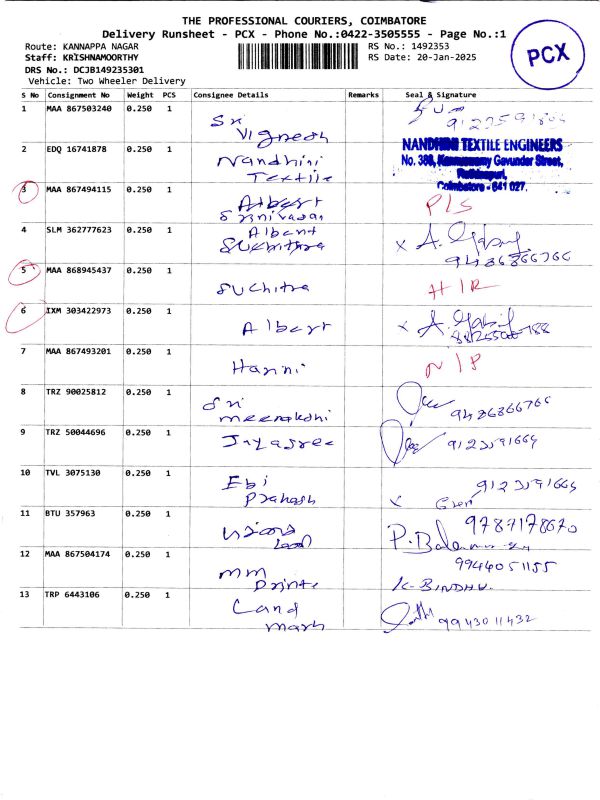 THE PROFESSIONAL COURIERS, COIMBATORE
Delivery Runsheet - PCX - Phone No.:0422-3505555 - Page No.:1
Route: KANNAPPA NAGAR RS No.: 1492353
Staff: KRISHNAMOORTHY RS Date: 20-Jan-2025
PCX
DRS No.: DCJB149235301
Vehicle: Two Wheeler Delivery
S No Consignment No Weight PCS Consignee Details Remarks Seal & Signature
1 MAA 867503240 0.250 1
Sri
Vignesh
2 EDQ 16741878 0.250 1
Nandhini
Textile
NANDHINI TEXTILE ENGINEERS
No. 388, Kannusamy Gounder Street,
Rathinapuri,
Coimbatore - 641 027.
3 MAA 867494115 0.250 1
Albert
Srinivasan
P/S
4 SLM 362777623 0.250 1
Albent
Suchithra
x A.
9486866766
5 MAA 868945437 0.250 1
Suchitra
H/R
6 IXM 303422973 0.250 1
Albert
x A.
7 MAA 867493201 0.250 1
Harini
N/P
8 TRZ 90025812 0.250 1
Sri
meenakshi
9486866766
9 TRZ 50044696 0.250 1
Jayasree
10 TVL 3075130 0.250 1
Ebi
Prakash
x
11 BTU 357963 0.250 1
9787178670
P.
12 MAA 867504174 0.250 1
MM
Prints
9944051155
K. BINDHU.
13 TRP 6443106 0.250 1
Land
mark
9943011432